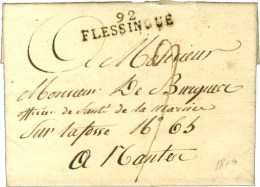 92
FLESSINGUE
A Monsieur
Monsieur De Burgues
officier de Santé de la marine
Sur la fosse N° 65
a Nantes